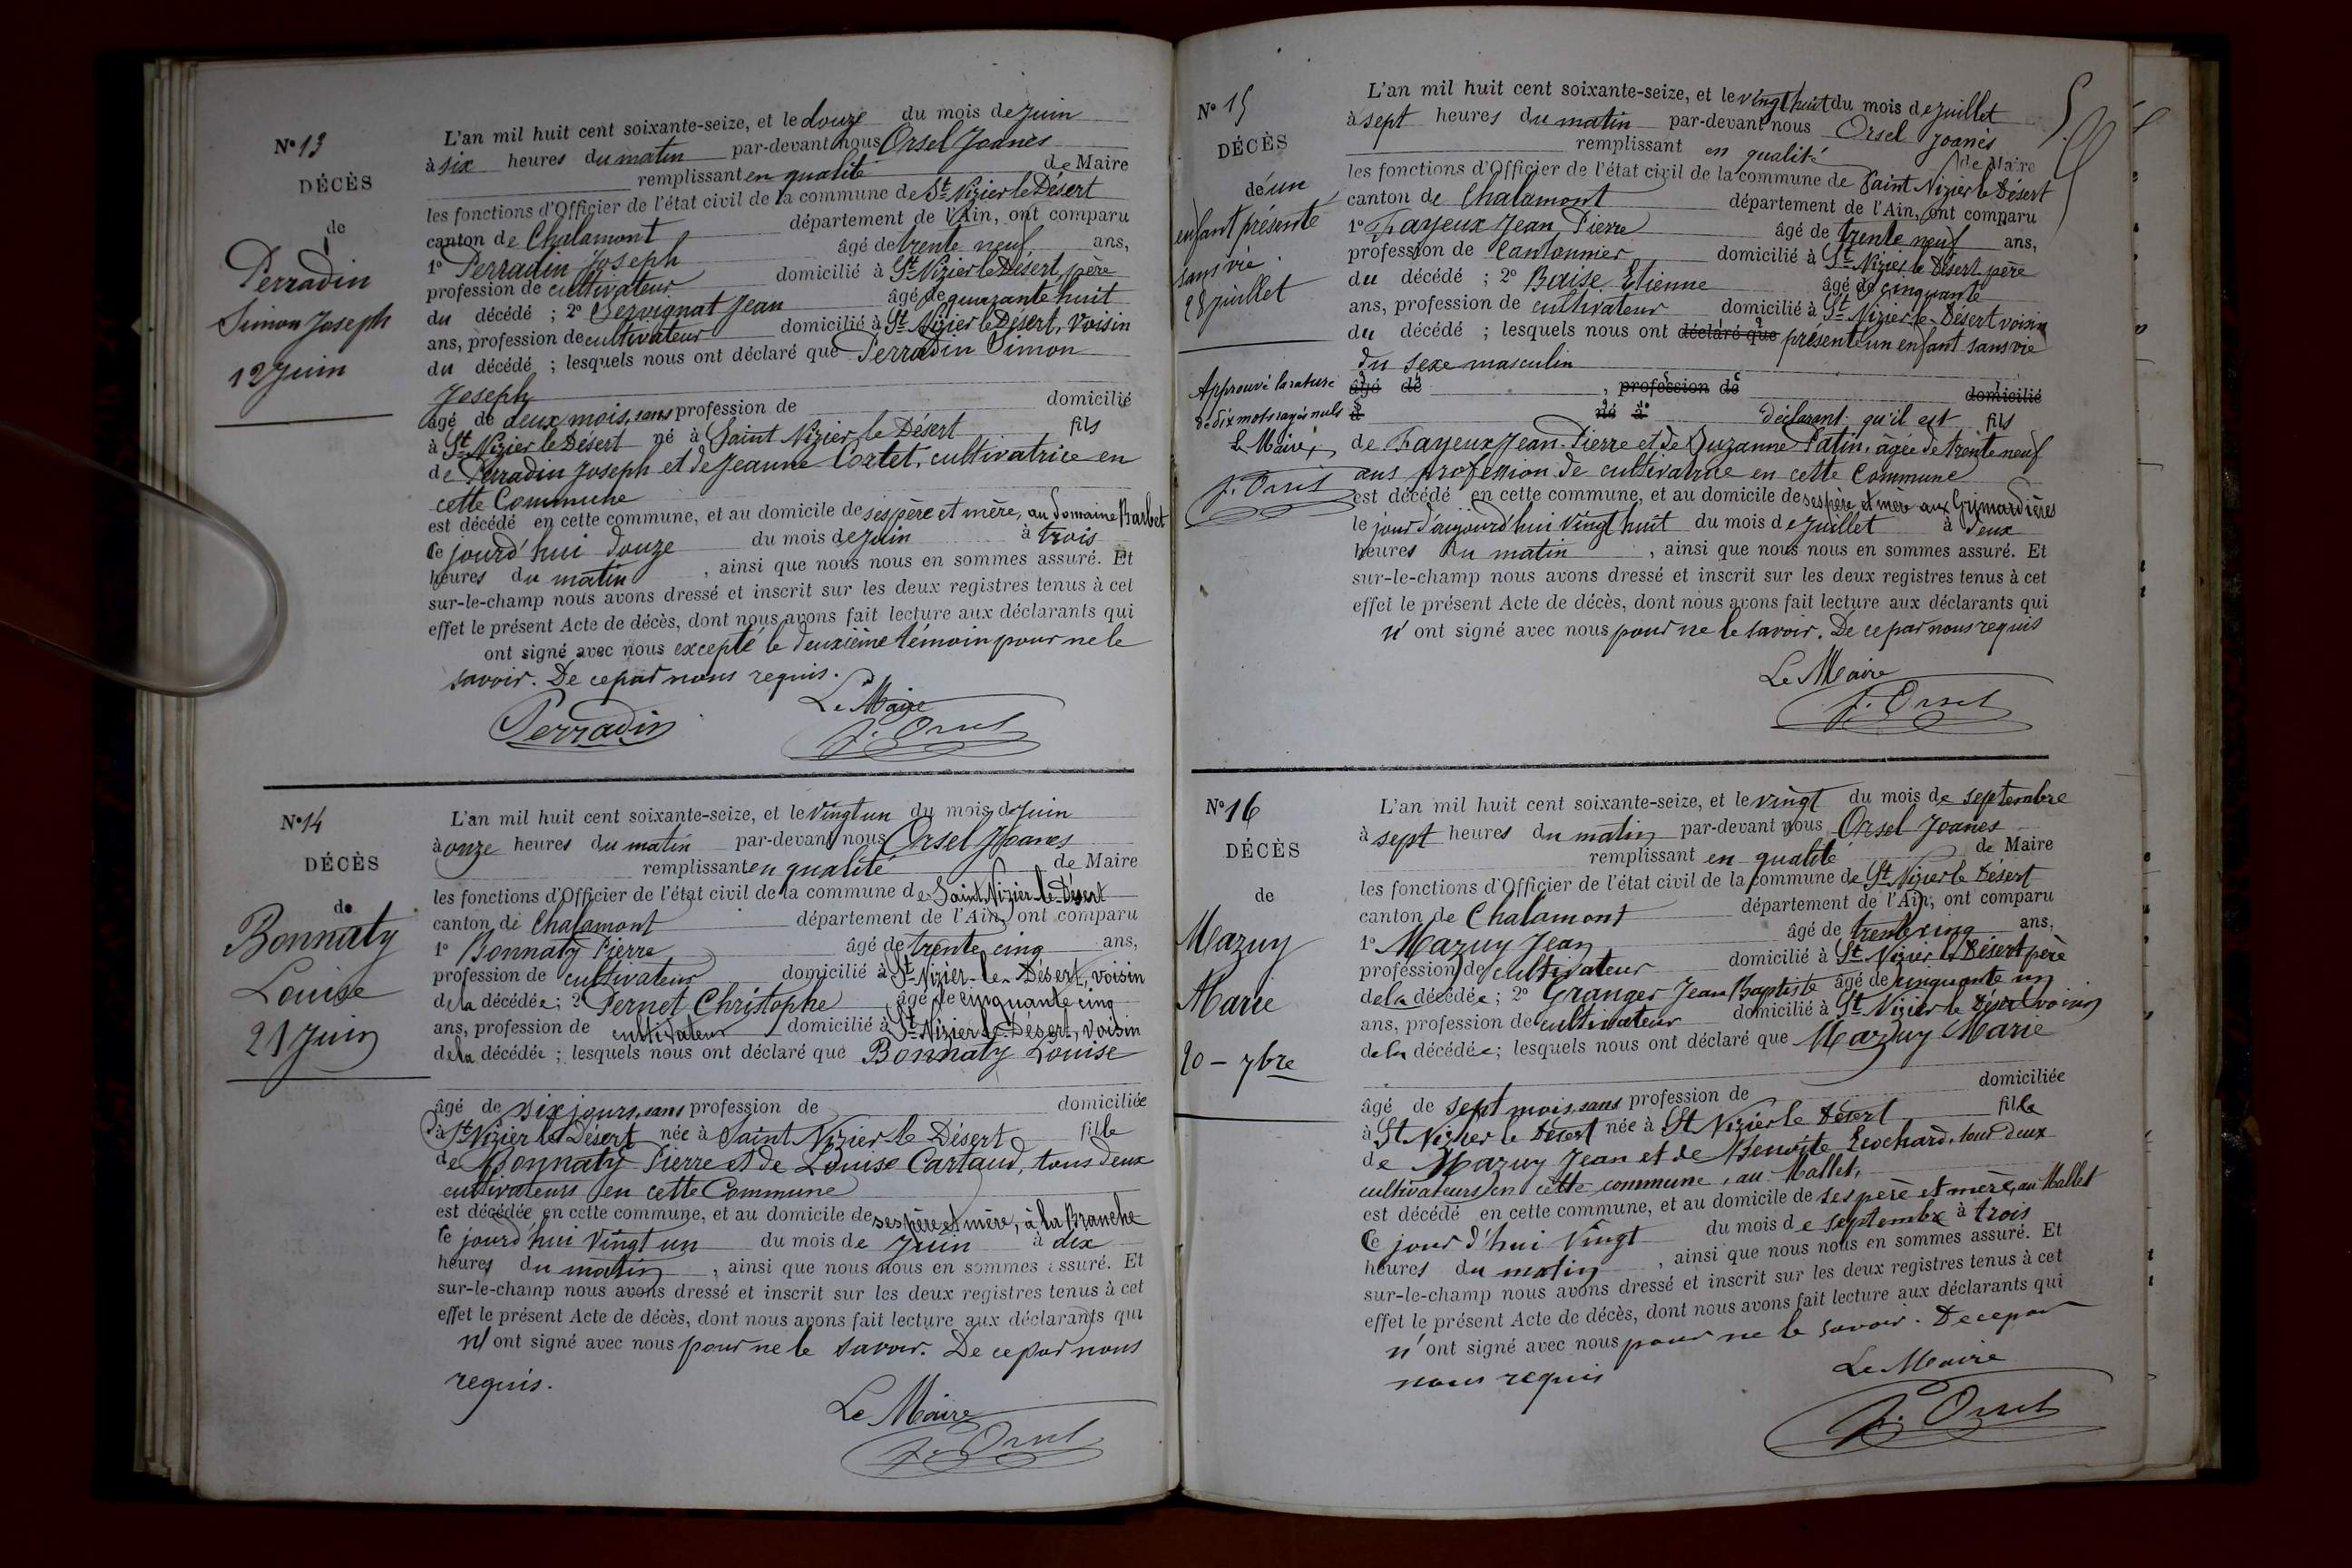 N° 13
DÉCÈS
de
Perradin
Simon Joseph
12 Juin
L'an mil huit cent soixante-seize, et le douze du mois de Juin
à six heures du matin par-devant nous Orsel Joanès
remplissant en qualité de Maire
les fonctions d'Officier de l'état civil de la commune de St Nizier le Désert
canton de Chalamont département de l'Ain, ont comparu
1° Perradin Joseph âgé de trente neuf ans,
profession de cultivateur domicilié à St Nizier le Désert, père
du décédé ; 2° Servignat Jean âgé de quarante huit
ans, profession de cultivateur domicilié à St Nizier le Désert, Voisin
du décédé ; lesquels nous ont déclaré que Perradin Simon
Joseph
âgé de deux mois, sans profession de domicilié
à St Nizier le Désert né à Saint Nizier le Désert fils
de Perradin Joseph et de Jeanne Cortet, cultivatrice en
cette Commune
est décédé en cette commune, et au domicile de ses père et mère, au domaine Barbet
Ce jourd'hui douze du mois de Juin à trois
heures du matin, ainsi que nous nous en sommes assuré. Et
sur-le-champ nous avons dressé et inscrit sur les deux registres tenus à cet
effet le présent Acte de décès, dont nous avons fait lecture aux déclarants qui
ont signé avec nous excepté le deuxième témoin pour ne le
savoir. De ce par nous requis.
Le Maire
Perradin J. Orsel
N° 14
DÉCÈS
de
Bonnaty
Louise
21 Juin
L'an mil huit cent soixante-seize, et le vingt un du mois de Juin
à onze heures du matin par-devant nous Orsel Joanès
remplissant en qualité de Maire
les fonctions d'Officier de l'état civil de la commune de Saint Nizier le Désert
canton de Chalamont département de l'Ain, ont comparu
1° Bonnaty Pierre âgé de trente cinq ans,
profession de cultivateur domicilié à St Nizier-le-Désert, voisin
de la décédée ; 2° Pernet Christophe âgé de cinquante cinq
ans, profession de cultivateur domicilié à St Nizier le Désert, Voisin
de la décédée ; lesquels nous ont déclaré que Bonnaty Louise
âgé de six jours, sans profession de domiciliée
à St Nizier le Désert née à Saint Nizier le Désert fille
de Bonnaty Pierre et de Louise Cartaud, tous deux
cultivateurs en cette Commune
est décédée en cette commune, et au domicile de ses père et mère, à la Branche
Ce jourd'hui Vingt un du mois de Juin à dix
heures du matin, ainsi que nous nous en sommes assuré. Et
sur-le-champ nous avons dressé et inscrit sur les deux registres tenus à cet
effet le présent Acte de décès, dont nous avons fait lecture aux déclarants qui
n'ont signé avec nous pour ne le savoir. De ce par nous
requis.
Le Maire
J. Orsel
N° 15
DÉCÈS
de un
enfant présenté
sans vie.
28 juillet
Approuvé la rature
de dix mots rayés nuls
Le Maire,
J. Orsel
L'an mil huit cent soixante-seize, et le vingt huit du mois de Juillet
à sept heures du matin par-devant nous Orsel Joanès
remplissant en qualité de Maire
les fonctions d'Officier de l'état civil de la commune de Saint Nizier le Désert
canton de Chalamont département de l'Ain, ont comparu
1° Fayeux Jean Pierre âgé de trente neuf ans,
profession de Cantonnier domicilié à St Nizier le Désert père
du décédé ; 2° Baise Etienne âgé de cinquante
ans, profession de cultivateur domicilié à St Nizier-le-Désert voisin
du décédé ; lesquels nous ont déclaré que présenté un enfant sans vie
du sexe masculin
âgé de , profession de domicilié
à né à déclarant qu'il est fils
de Fayeux Jean-Pierre et de Suzanne Patin, âgée de trente neuf
ans profession de cultivatrice en cette Commune
est décédé en cette commune, et au domicile de ses père et mère aux Grimardières
le jour d'aujourd'hui Vingt huit du mois de Juillet à deux
heures du matin, ainsi que nous nous en sommes assuré. Et
sur-le-champ nous avons dressé et inscrit sur les deux registres tenus à cet
effet le présent Acte de décès, dont nous avons fait lecture aux déclarants qui
n'ont signé avec nous pour ne le savoir. De ce par nous requis
Le Maire
J. Orsel
N° 16
DÉCÈS
de
Mazuy
Marie
20 - 7bre
L'an mil huit cent soixante-seize, et le vingt du mois de septembre
à sept heures du matin par-devant nous Orsel Joanès
remplissant en qualité de Maire
les fonctions d'Officier de l'état civil de la commune de St Nizier le Désert
canton de Chalamont département de l'Ain, ont comparu
1° Mazuy Jean âgé de trente cinq ans,
profession de cultivateur domicilié à St Nizier le Désert père
de la décédée ; 2° Granger Jean Baptiste âgé de cinquante un
ans, profession de cultivateur domicilié à St Nizier le Désert voisin
de la décédée ; lesquels nous ont déclaré que Mazuy Marie
âgé de sept mois, sans profession de domiciliée
à St Nizier le Désert née à St Nizier le Désert fille
de Mazuy Jean et de Benoîte Leochard, tous deux
cultivateurs en cette commune, au Mallet,
est décédé en cette commune, et au domicile de ses père et mère, au Mallet
Ce jour d'hui Vingt du mois de septembre à trois
heures du matin, ainsi que nous nous en sommes assuré. Et
sur-le-champ nous avons dressé et inscrit sur les deux registres tenus à cet
effet le présent Acte de décès, dont nous avons fait lecture aux déclarants qui
n'ont signé avec nous pour ne le savoir. De ce par
nous requis
Le Maire
J. Orsel